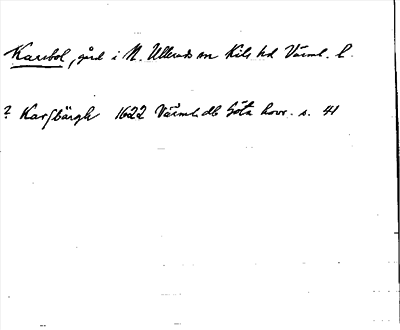 Karsbol, gård i N. Ullerud sn Kils hd Värml. l.
? Karsbärgh 1622 Värml. db Göta hovr. s. 41